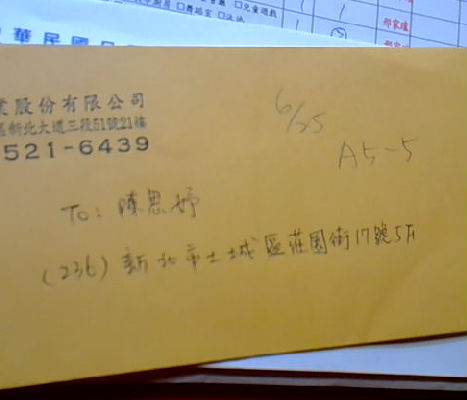 兒童遊戲
華民國
邢家瓊
業股份有限公司
區新北大道三段51號21樓
521-6439
6/25
A5-5
To: 陳思妤
(236) 新北市土城區莊園街17號5F